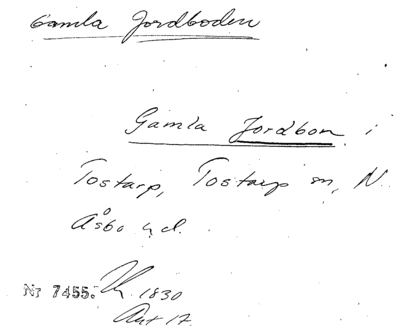 Gamla Jordboden
Gamla Jordbon i
Tostarp, Tostarp sn, N.
Åsbo hd.
Nr 7455. 1830
Art 17